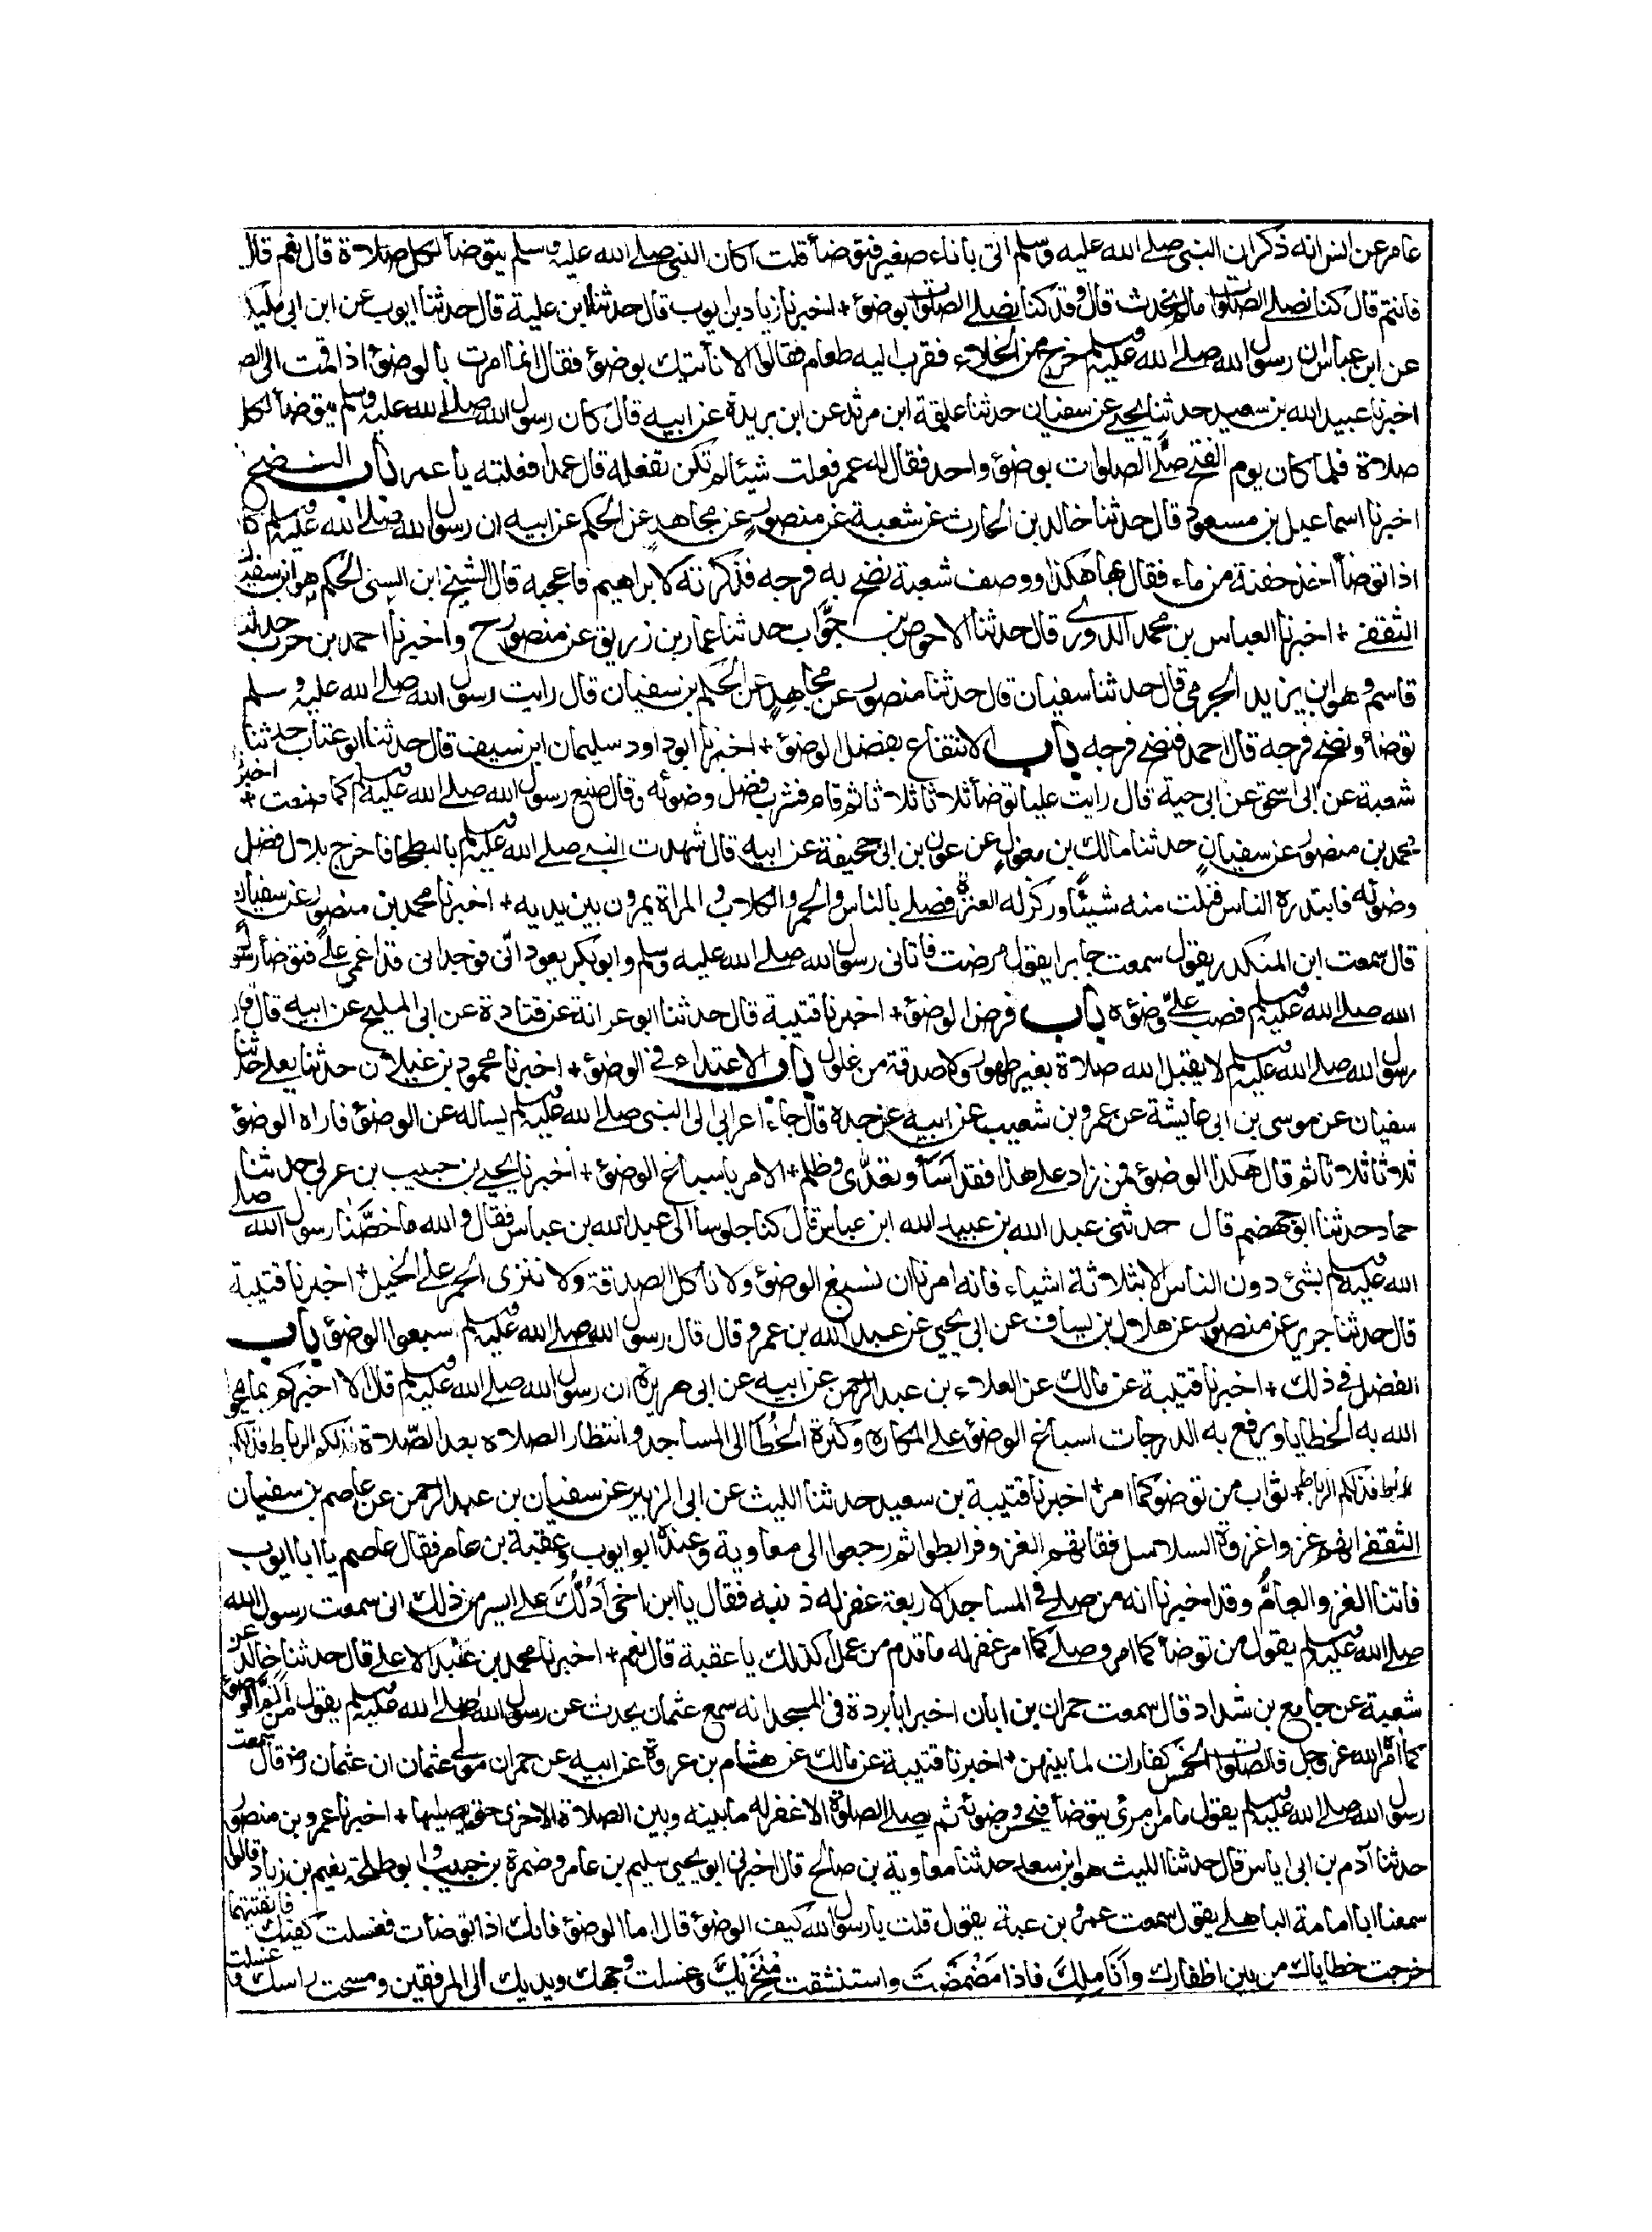 عامر عن انس انه ذكر ان النبي صلى الله عليه وسلم اتى باناء صغير فتوضأ قلت اكان النبي صلى الله عليه وسلم يتوضأ لكل صلاة قال نعم قال
فانتم قال كنا نصلي الصلوات مالم نحدث قال وقد كنا نصلي الصلوات بوضوء + اخبرنا زياد بن ايوب قال حدثنا ابن علية قال حدثنا ايوب عن ابن ابي مليكة
عن ابن عباس ان رسول الله صلى الله عليه وسلم خرج من الخلاء فقرب اليه طعام فقالوا الا نأتيك بوضوء فقال انما امرت بالوضوء اذا قمت الى الص
اخبرنا عبيد الله بن سعيد حدثنا يحيى عن سفيان حدثنا علقمة ابن مرثد عن ابن بريدة عن ابيه قال كان رسول الله صلى الله عليه وسلم يتوضأ لكل
صلاة فلما كان يوم الفتح صلى الصلوات بوضوء واحد فقال له عمر فعلت شيئا لم تكن تفعله قال عمدا فعلته يا عمر باب النضح
اخبرنا اسماعيل بن مسعود قال حدثنا خالد بن الحارث عن شعبة عن منصور عن مجاهد عن الحكم عن ابيه ان رسول الله صلى الله عليه وسلم كان
اذا توضأ اخذ حفنة من ماء فقال بها هكذا ووصف شعبة نضح به فرجه فذكرته لابراهيم فاعجبه قال الشيخ ابن السني الحكم هو ابن سفيان
الثقفي + اخبرنا العباس بن محمد الدوري قال حدثنا الاحوص بن جوّاب حدثنا عمار بن زريق عن منصور ح واخبرنا احمد بن حرب حدثنا
قاسم وهو ابن يزيد الجرمي قال حدثنا سفيان قال حدثنا منصور عن مجاهد عن الحكم بن سفيان قال رايت رسول الله صلى الله عليه وسلم
توضأ ونضح فرجه قال احمد فنضح فرجه باب الانتفاع بفضل الوضوء + اخبرنا ابو داود سليمان ابن سيف قال حدثنا ابو عتاب حدثنا
شعبة عن ابي اسحق عن ابي حية قال رايت عليا توضأ ثلاثا ثلاثا ثم قام فشرب فضل وضوئه وقال صنع رسول الله صلى الله عليه وسلم كما صنعت + اخبرنا
محمد بن منصور عن سفيان حدثنا مالك بن مغول عن عون بن ابي جحيفة عن ابيه قال شهدت النبي صلى الله عليه وسلم بالبطحا فاخرج بلال فضل
وضوئه فابتدره الناس فنلت منه شيئا وركز له العنزة فصلى بالناس والحمر والكلاب والمراة يمرون بين يديه + اخبرنا محمد بن منصور عن سفيان
قال سمعت ابن المنكدر يقول سمعت جابرا يقول مرضت فاتاني رسول الله صلى الله عليه وسلم وابو بكر يعوداني فوجداني قد اغمي علي فتوضأ رسول
الله صلى الله عليه وسلم فصب عليّ وضوءه باب فرض الوضوء + اخبرنا قتيبة قال حدثنا ابو عوانة عن قتادة عن ابي المليح عن ابيه قال قال
رسول الله صلى الله عليه وسلم لا يقبل الله صلاة بغير طهور ولا صدقة من غلول باب الاعتداء في الوضوء + اخبرنا محمود بن غيلان حدثنا يعلى حدثنا
سفيان عن موسى بن ابي عايشة عن عمرو بن شعيب عن ابيه عن جده قال جاء اعرابي الى النبي صلى الله عليه وسلم يساله عن الوضوء فاراه الوضوء
ثلاثا ثلاثا ثم قال هكذا الوضوء فمن زاد على هذا فقد اَسَأ وتعدّى وظلم + الامر باسباغ الوضوء + اخبرنا يحيى بن حبيب بن عربي حدثنا
حماد حدثنا ابو جهضم قال حدثني عبد الله بن عبيد الله ابن عباس قال كنا جلوسا الى عبد الله بن عباس فقال والله ما خصّنا رسول الله صلى
الله عليه وسلم بشئ دون الناس الا بثلاثة اشياء فانه امرنا ان نسبغ الوضوء ولا ناكل الصدقة ولا ننزي الحمر على الخيل + اخبرنا قتيبة
قال حدثنا جرير عن منصور عن هلال بن يساف عن ابي يحيى عن عبد الله بن عمرو قال قال رسول الله صلى الله عليه وسلم اسبغوا الوضوء باب
الفضل في ذلك + اخبرنا قتيبة عن مالك عن العلاء بن عبد الرحمن عن ابيه عن ابي هريرة ان رسول الله صلى الله عليه وسلم قال الا اخبركم بما يمحو
الله به الخطايا ويرفع به الدرجات اسباغ الوضوء على المكاره وكثرة الخُطَا الى المساجد وانتظار الصلاه بعد الصّلاة فذلكم الرباط فذلكم
الرباط فذلكم الرباط + ثواب من توضؤ كما امر + اخبرنا قتيبة بن سعيد حدثنا الليث عن ابي الزبير عن سفيان بن عبد الرحمن عن عاصم بن سفيان
الثقفي انهم غزوا غزوة السلاسل ففاتهم الغزو فرابطوا ثم رجعوا الى معاوية وعنده ابو ايوب وعقبة بن عامر فقال عاصم يا ابا ايوب
فاتنا الغزو العامُّ وقد اخبرنا انه من صلى في المساجد الاربعة غفر له ذنبه فقال يا ابن اخي اَدُلُّكَ على ايسر من ذلك اني سمعت رسول الله
صلى الله عليه وسلم يقول من توضأ كما امر وصلى كما امر غفر له ما قدم من عمل كذلك يا عقبة قال نعم + اخبرنا محمد بن عَبْد الاعلى قال حدثنا خالد عن
شعبة عن جامع بن شداد قال سمعت حمران بن ابان اخبر ابا بردة في المسجد انه سمع عثمان يحدث عن رسول الله صلى الله عليه وسلم يقول من اتمّ الوضوء
كما امره الله عز وجل فالصلوات الخمس كفارات لما بينهن + اخبرنا قتيبة عن مالك عن هشام بن عروة عن ابيه عن حمران مولى عثمان ان عثمان رض قال سمعت
رسول الله صلى الله عليه وسلم يقول ما من امرئ يتوضأ فيحسن وضوئه ثم يصلي الصلوة الا غفر له ما بينه وبين الصلاة الاخرى حتى يصليها + اخبرنا عمرو بن منصور
حدثنا آدم بن ابي اياس قال حدثنا الليث هو ابن سعد حدثنا معاوية بن صالح قال اخبرني ابو يحيى سليم بن عامر وضمرة بن حبيب وابو طلحة نعيم بن زياد قالوا
سمعنا ابا امامة الباهلي يقول سمعت عمرو بن عبة يقول قلت يا رسول الله كيف الوضوء قال اما الوضوء فانك اذا توضأت فغسلت كفيك فانقيتهما
خرجت خطاياك من بين اظفارك وَاَنَامِلِكَ فاذا مَضْمَضْتَ واستنشقت مَنْخَرَيْكَ وغسلت وجهك ويديك الى المرفقين ومسحت راسك وغسلت